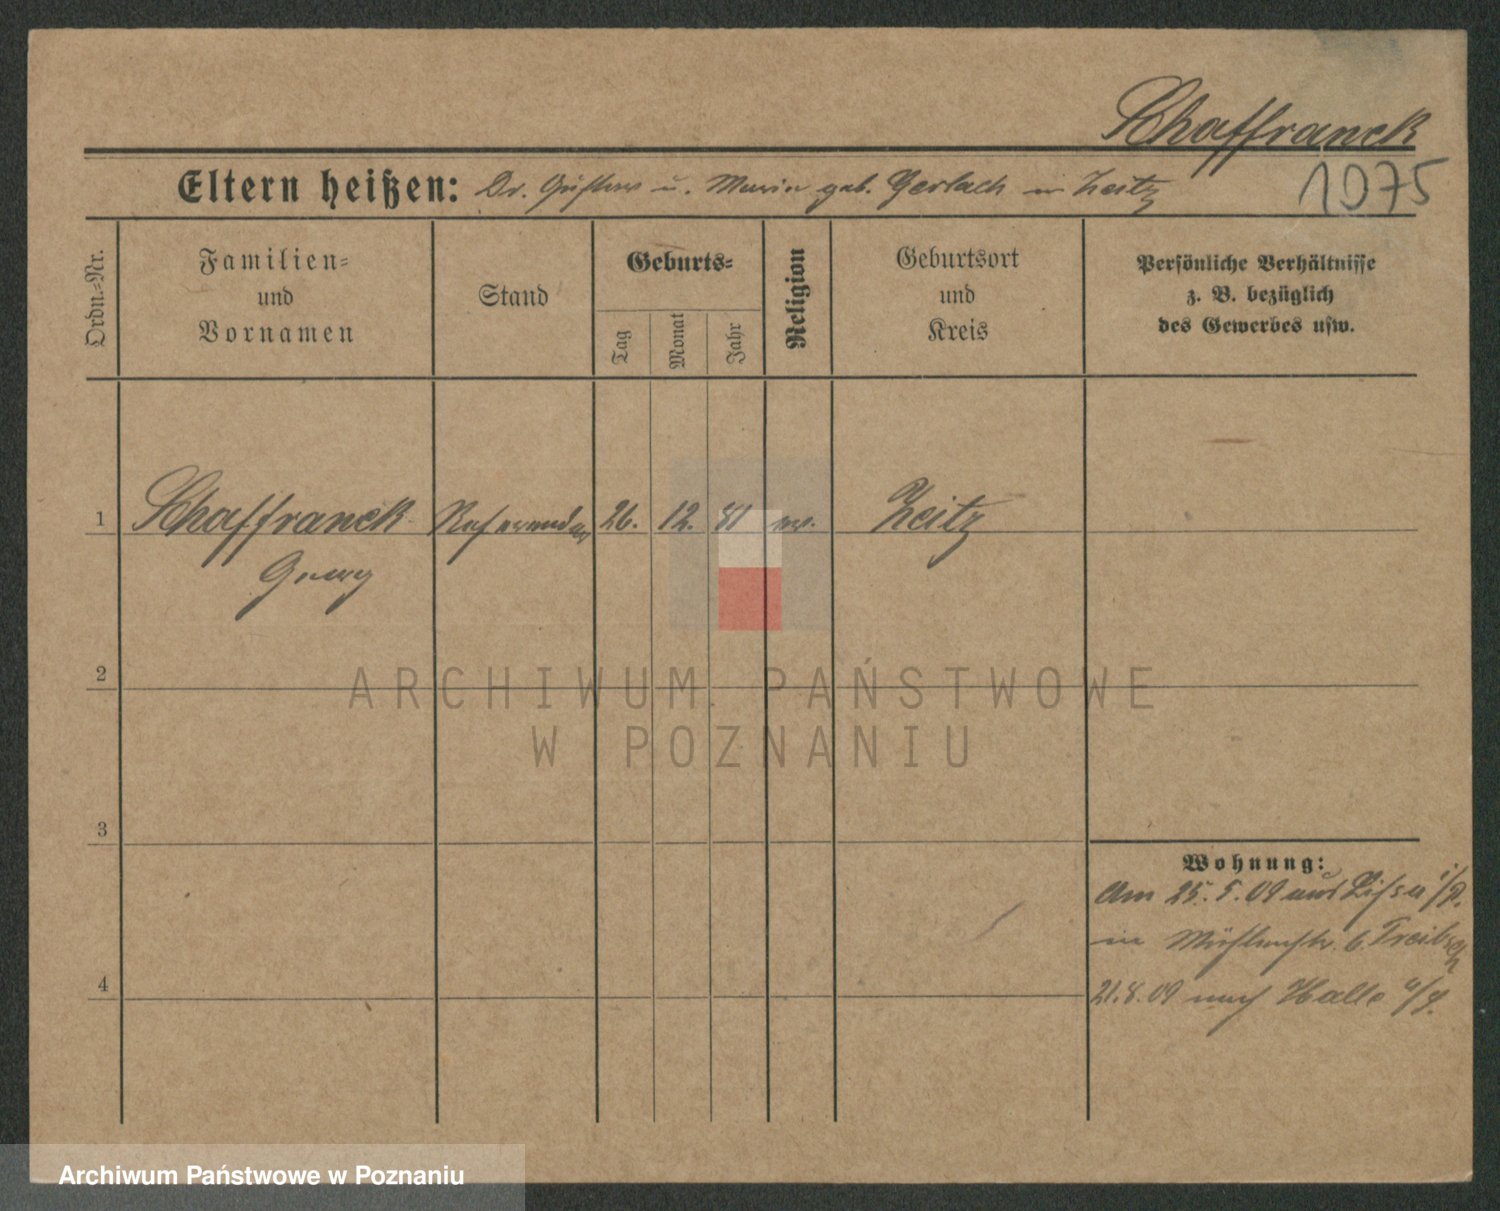 Schaffranck
1075
Eltern heißen: Dr. Gustav u. Marie geb. Gerlach in Zeitz
Ordn.-Nr.
Familien-
und
Vornamen
Stand
Geburts-
Tag
Monat
Jahr
Religion
Geburtsort
und
Kreis
Persönliche Verhältnisse
z. B. bezüglich
des Gewerbes usw.
1 Schaffranck Referendar 26. 12. 81 ev. Zeitz
Georg
2
ARCHIWUM PAŃSTWOWE
W POZNANIU
3
Wohnung:
Am 25. 5. 09 aus Lissa i/P.
in Mühlenstr. 6.
4
21.8.09 nach Halle a/S.
Archiwum Państwowe w Poznaniu